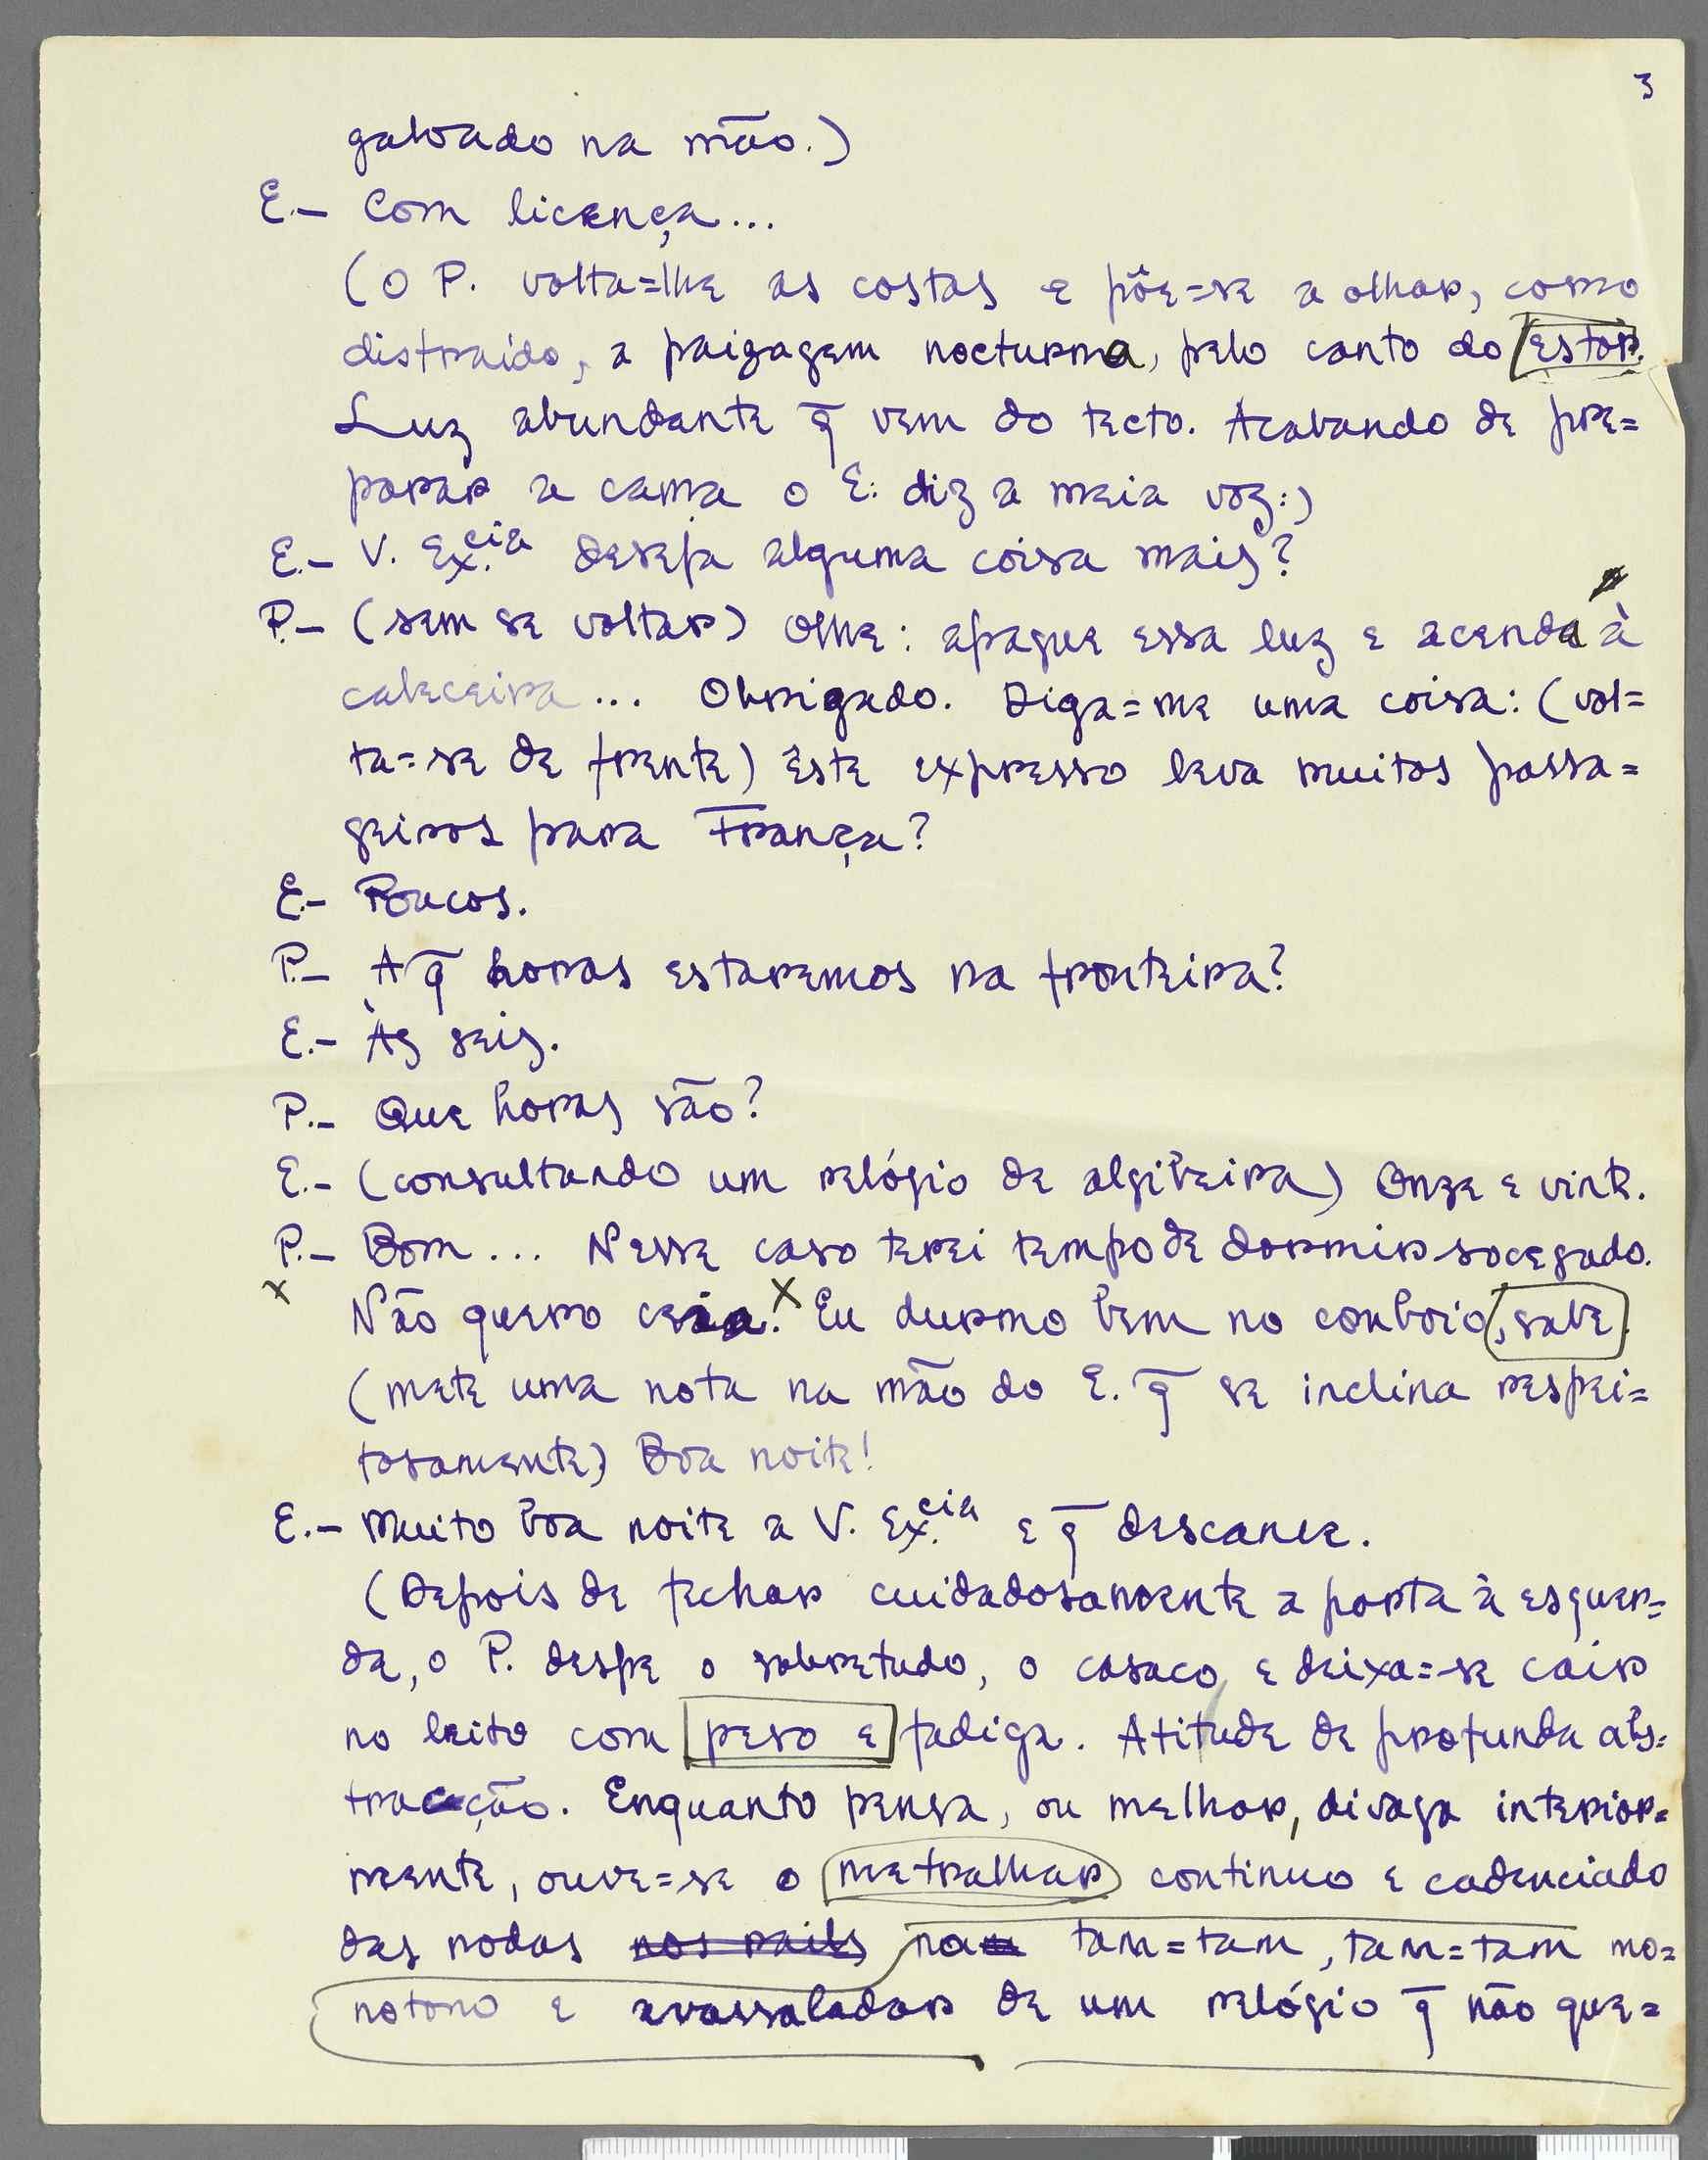 3
galoado na mão.)
E.- Com licença...
(O P. volta=lhe as costas e põe=se a olhar, como
distraido, a paizagem nocturna, pelo canto do estor.
Luz abundante q̃ vem do tecto. Acabando de pre=
parar a cama o E. diz a meia voz:)
E.- V. Ex.cia deseja alguma coisa mais?
P.- (sem se voltar) Olhe: apague essa luz e acenda à
cabeceira... Obrigado. Diga=me uma coisa: (vol=
ta=se de frente) Êste expresso leva muitos passa=
geiros para França?
E.- Poucos.
P.- A q̃ horas estaremos na fronteira?
E.- Às seis.
P.- Que horas são?
E.- (consultando um relógio de algibeira) Onze e vinte.
P.- Bom... Nesse caso terei tempo de dormir socegado.
x Não quero ceia. x Eu durmo bem no comboio, sabe.
(mete uma nota na mão do E. q̃ se inclina respei=
tosamente) Boa noite!
E.- Muito boa noite a V. Ex.cia e q̃ descance.
(Depois de fechar cuidadosamente a porta à esquer=
da, o P. despe o sobretudo, o casaco, e deixa=se cair
no leito com peso e fadiga. Atitude de profunda abs=
tracção. Enquanto pensa, ou melhor, divaga interior=
mente, ouve=se o metralhar continuo e cadenciado
das rodas nos rails no tam=tam, tam=tam mo=
notono e avassalador de um relógio q̃ não que=